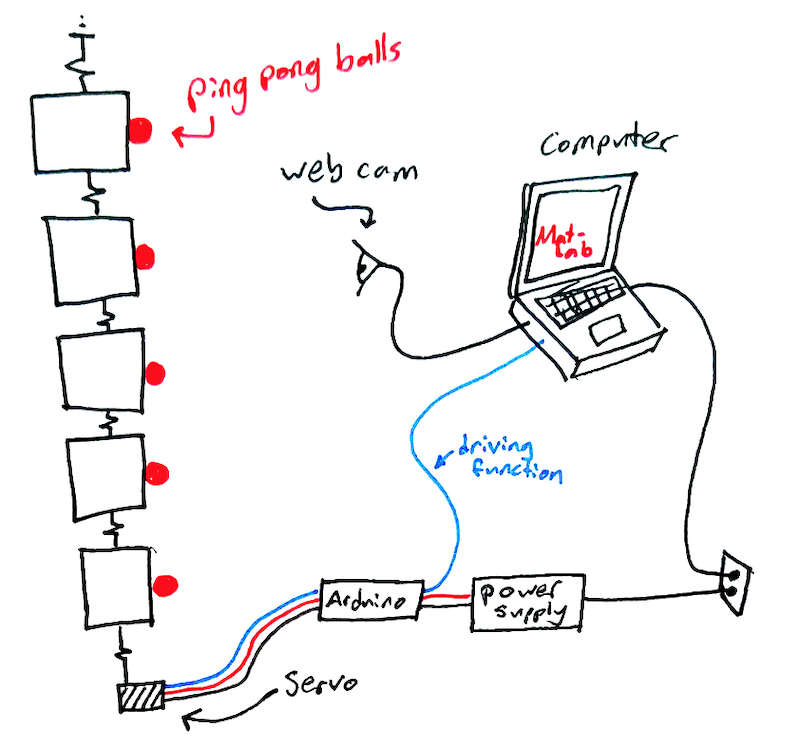 ping pong balls
web cam
Computer
Mat-
Lab
driving
function
Arduino
power
supply
Servo